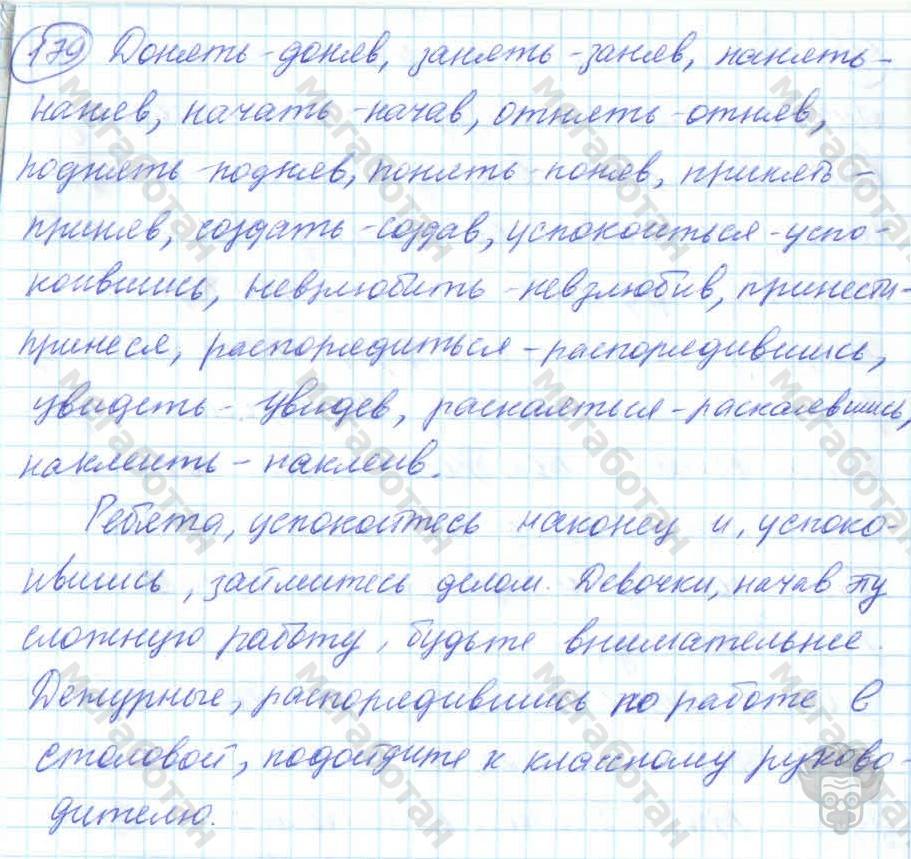 179 Донять - доняв, занять - заняв, нанять -
наняв, начать - начав, отнять - отняв,
поднять - подняв, понять - поняв, принять -
приняв, создать - создав, успокоиться - успо-
коившись, невзлюбить - невзлюбив, принести -
принеся, распорядиться - распорядившись,
увидеть - увидев, раскаяться - раскаявшись,
наклеить - наклеив.
Ребята, успокойтесь наконец и, успоко-
ившись, займитесь делом. Девочки, начав эту
сложную работу, будьте внимательнее.
Дежурные, распорядившись по работе в
столовой, подойдите к классному руково-
дителю.
мегаботан